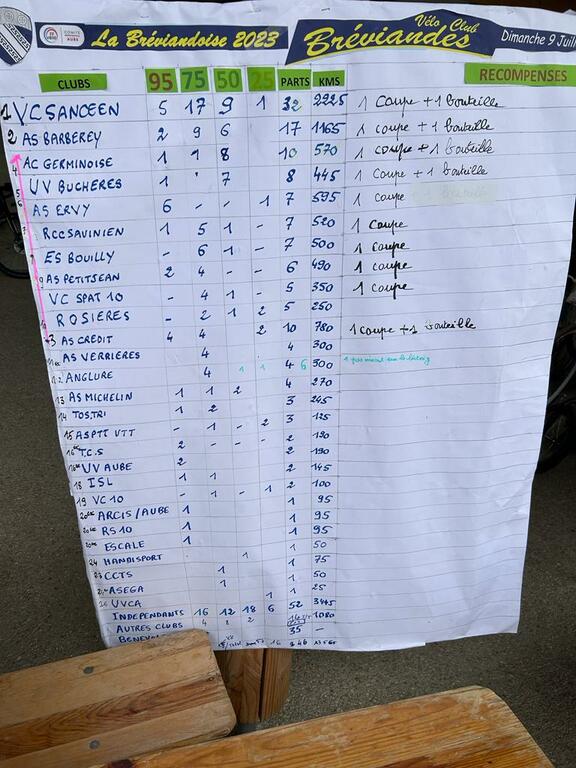 La Bréviandoise 2023
Vélo Club
Bréviandes
Dimanche 9 Juil
CLUBS 95 75 50 25 PARTS KMS RECOMPENSES
1 VC SANCEEN 5 17 9 1 32 2225 1 coupe + 1 bouteille
2 AS BARBEREY 2 9 6 17 1165 1 coupe + 1 bouteille
AC GERMINOISE 1 1 8 10 570 1 coupe + 1 bouteille
UV BUCHERES 1 7 8 445 1 coupe + 1 bouteille
AS ERVY 6 - - 1 7 595 1 coupe
RCC SAVINIEN 1 5 1 - 7 520 1 coupe
ES BOUILLY - 6 1 - 7 500 1 coupe
AS PETITJEAN 2 4 - - 6 490 1 coupe
VC SPAT 10 - 4 1 - 5 350 1 coupe
ROSIERES - 2 1 2 5 250
3 AS CREDIT 4 4 2 10 780 1 coupe + 1 bouteille
AS VERRIERES 4 4 300
ANGLURE 4 1 1 4 6 300
13 AS MICHELIN 1 1 2 4 270
14 TOS.TRI 1 2 3 245
15 ASPTT VTT - 1 - 2 3 125
T.C.S 2 - - - 2 190
UV AUBE 2 2 190
18 ISL 1 1 2 145
19 VC 10 - 1 - 1 2 100
ARCIS/AUBE 1 1 95
RS 10 1 1 95
ESCALE 1 1 95
HANDISPORT 1 1 50
CCTS 1 1 75
ASEGA 1 1 50
UVCA 1 1 25
INDEPENDANTS 16 12 18 6 52 3445
AUTRES CLUBS 4 8 2 14 1080
BENEVOL 35 -